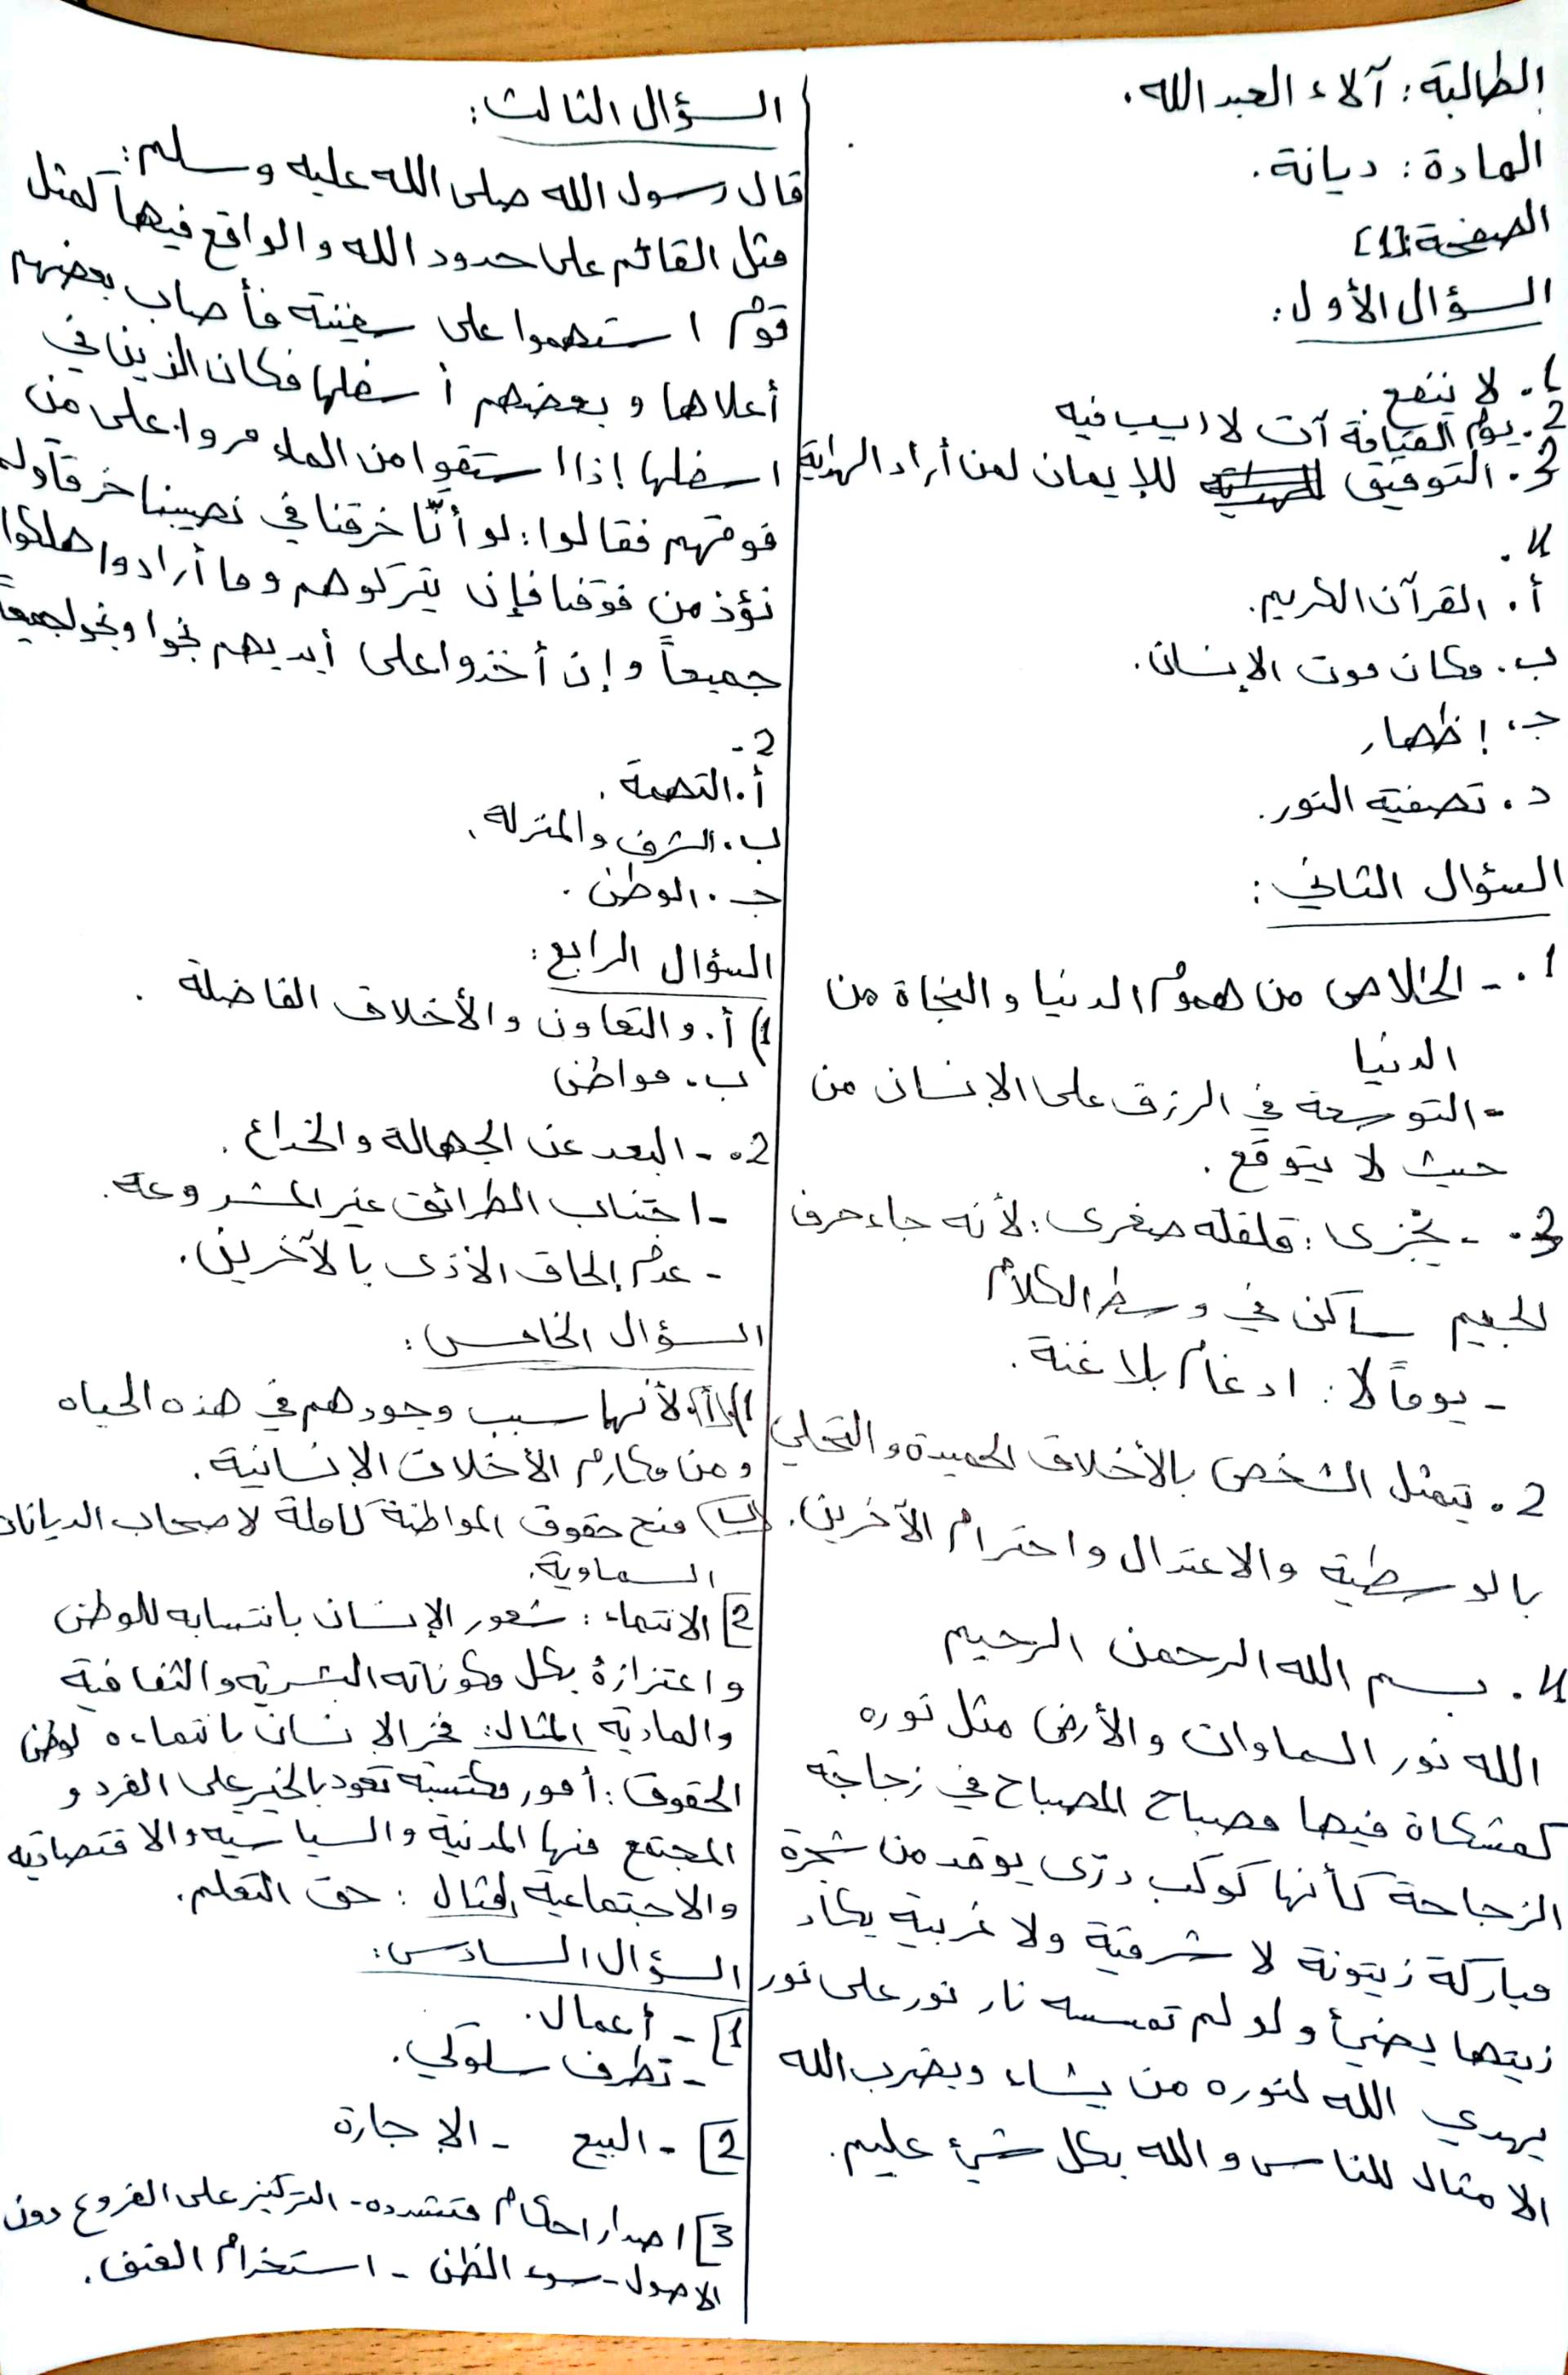 الطالبة: آلاء العبدالله.
المادة: ديانة.
الصفحة: [1]
السؤال الأول:
1. لا ينفع
2. يوم القيامة آت لا ريب فيه
3. التوفيق للإيمان لمن أراد الهداية
4.
أ. القرآن الكريم.
ب. مكان موت الإنسان.
جـ. إظهار
د. تصفية النور.
السؤال الثاني:
1. - الخلاص من هموم الدنيا والنجاة من
الدنيا
- التوسعة في الرزق على الإنسان من
حيث لا يتوقع.
3. - يجزى: قلقلة صغرى: لأنه جاء حرف
الجيم ساكن في وسط الكلام
- يوماً لا: ادغام بلا غنة.
2. يتمثل الشخص بالأخلاق الحميدة والتحلي
بالوسطية والاعتدال واحترام الآخرين.
4. بسم الله الرحمن الرحيم
الله نور السماوات والأرض مثل نوره
كمشكاة فيها مصباح المصباح في زجاجة
الزجاجة كأنها كوكب درّى يوقد من شجرة
مباركة زيتونة لا شرقية ولا غربية يكاد
زيتها يضيئ ولو لم تمسسه نار نور على نور
يهدي الله لنوره من يشاء ويضرب الله
الامثال للناس والله بكل شيئ عليم.
السؤال الثالث:
قال رسول الله صلى الله عليه وسلم:
مثل القائم على حدود الله والواقع فيها كمثل
قوم استهموا على سفينة فأصاب بعضهم
أعلاها وبعضهم أسفلها فكان الذين في
اسفلها إذا استقوا من الماء مروا على من
فوقهم فقالوا: لو أنّا خرقنا في نصيبنا خرقاً ولم
نؤذ من فوقنا فإن يتركوهم وما أرادوا هلكوا
جميعاً وإن أخذوا على أيديهم نجوا ونجو جميعاً
2-
أ. التهمة.
ب. الشرف والمنزلة.
جـ. الوطن.
السؤال الرابع:
1) أ. والتعاون والأخلاق الفاضلة.
ب. مواطن
2. - البعد عن الجهالة والخداع.
- اجتناب الطرائق غير المشروعة.
- عدم إلحاق الأذى بالآخرين.
السؤال الخامس:
1) أ) لأنها سبب وجودهم في هذه الحياه
ومن مكارم الأخلاق الإنسانية.
ب) منح حقوق المواطنة كاملة لاصحاب الديانات
السماوية.
2] الانتماء: شعور الإنسان بانتسابه للوطن
واعتزازهُ بكل مكوناته البشرية والثقافية
والمادية المثال: فخر الإنسان بانتماءه لوطن
الحقوق: أمور مكتسبة تعود بالخير على الفرد و
المجتمع منها المدنية والسياسيه والاقتصاديه
والاجتماعية المثال: حق التعلم.
السؤال السادس:
1] - أعمال.
- تطرف سلوكي.
2] - البيع - الإجارة
3] اصدار احكام متشدده - التركيز على الفروع دون
الاصول - سوء الظن - استخدام العنف.